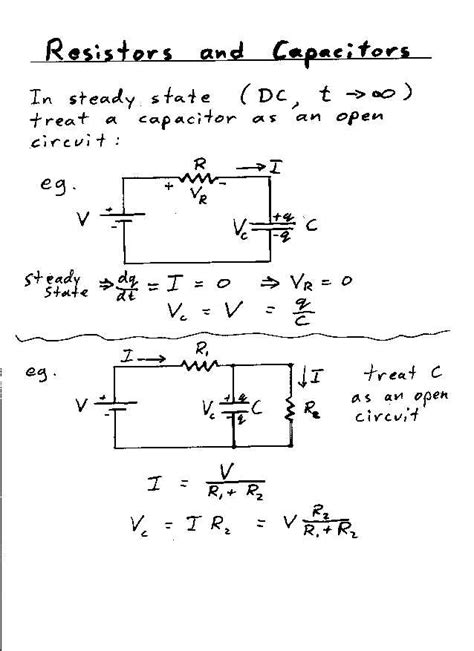 Resistors and Capacitors
In steady state (DC, t → ∞)
treat a capacitor as an open
circuit:
eg.
R
→ I
+ V_R -
V
+
-
V_c
+q
-q
C
Steady State ⇒ dq/dt = I = 0 ⇒ V_R = 0
V_c = V = q/C
eg.
I →
R₁
V
+
-
V_c
+q
-q
C
↓ I
R₂
treat C
as an open
circuit
I = V/(R₁ + R₂)
V_c = I R₂ = V R₂/(R₁ + R₂)